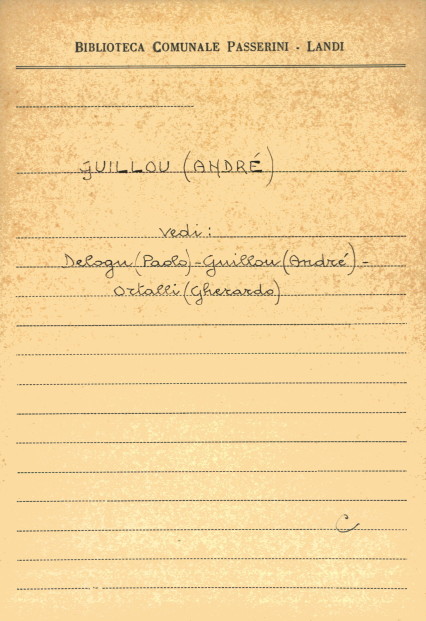 BIBLIOTECA COMUNALE PASSERINI - LANDI
GUILLOU (ANDRÉ)
Vedi:
Delogu (Paolo) - Guillou (André) -
Ortalli (Gherardo)
C